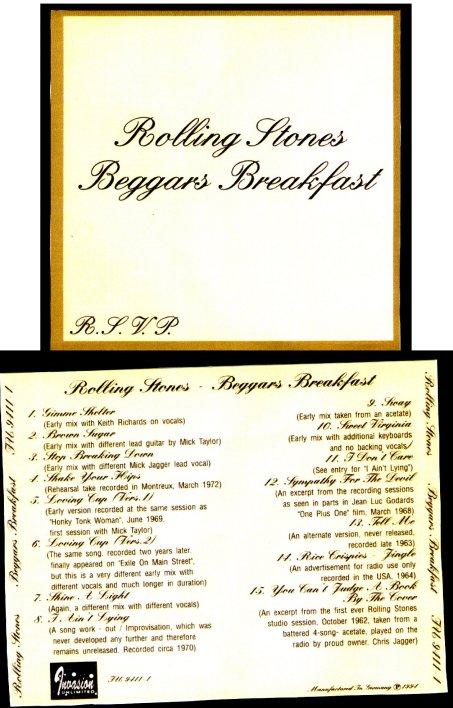 Rolling Stones
Beggars Breakfast
R.S.V.P.
Rolling Stones - Beggars Breakfast
1. Gimme Shelter
(Early mix with Keith Richards on vocals)
2. Brown Sugar
(Early mix with different lead guitar by Mick Taylor)
3. Stop Breaking Down
(Early mix with different Mick Jagger lead vocal)
4. Shake Your Hips
(Rehearsal take recorded in Montreux, March 1972)
5. Loving Cup (Vers.1)
(Early version recorded at the same session as
"Honky Tonk Woman", June 1969,
first session with Mick Taylor)
6. Loving Cup (Vers.2)
(The same song, recorded two years later,
finally appeared on "Exile On Main Street",
but this is a very different early mix with
different vocals and much longer in duration)
7. Shine A Light
(Again, a different mix with different vocals)
8. I Ain't Lying
(A song work - out / Improvisation, which was
never developed any further and therefore
remains unreleased. Recorded circa 1970)
9. Sway
(Early mix taken from an acetate)
10. Sweet Virginia
(Early mix with additional keyboards
and no backing vocals)
11. I Don't Care
(See entry for "I Ain't Lying")
12. Sympathy For The Devil
(An excerpt from the recording sessions
as seen in parts in Jean Luc Godards
"One Plus One" film, March 1968)
13. Tell Me
(An alternate version, never released,
recorded late 1963)
14. Rice Crispies - Jingle
(An advertisement for radio use only
recorded in the USA, 1964)
15. You Can't Judge A Book
By The Cover
(An excerpt from the first ever Rolling Stones
studio session, October 1962, taken from a
battered 4-song- acetate, played on the
radio by proud owner, Chris Jagger)
Invasion
UNLIMITED
IU 9111-1
Manufactured In Germany Ⓟ 1991
Rolling Stones Beggars Breakfast IU 9111 1
Rolling Stones Beggars Breakfast IU 9111 1